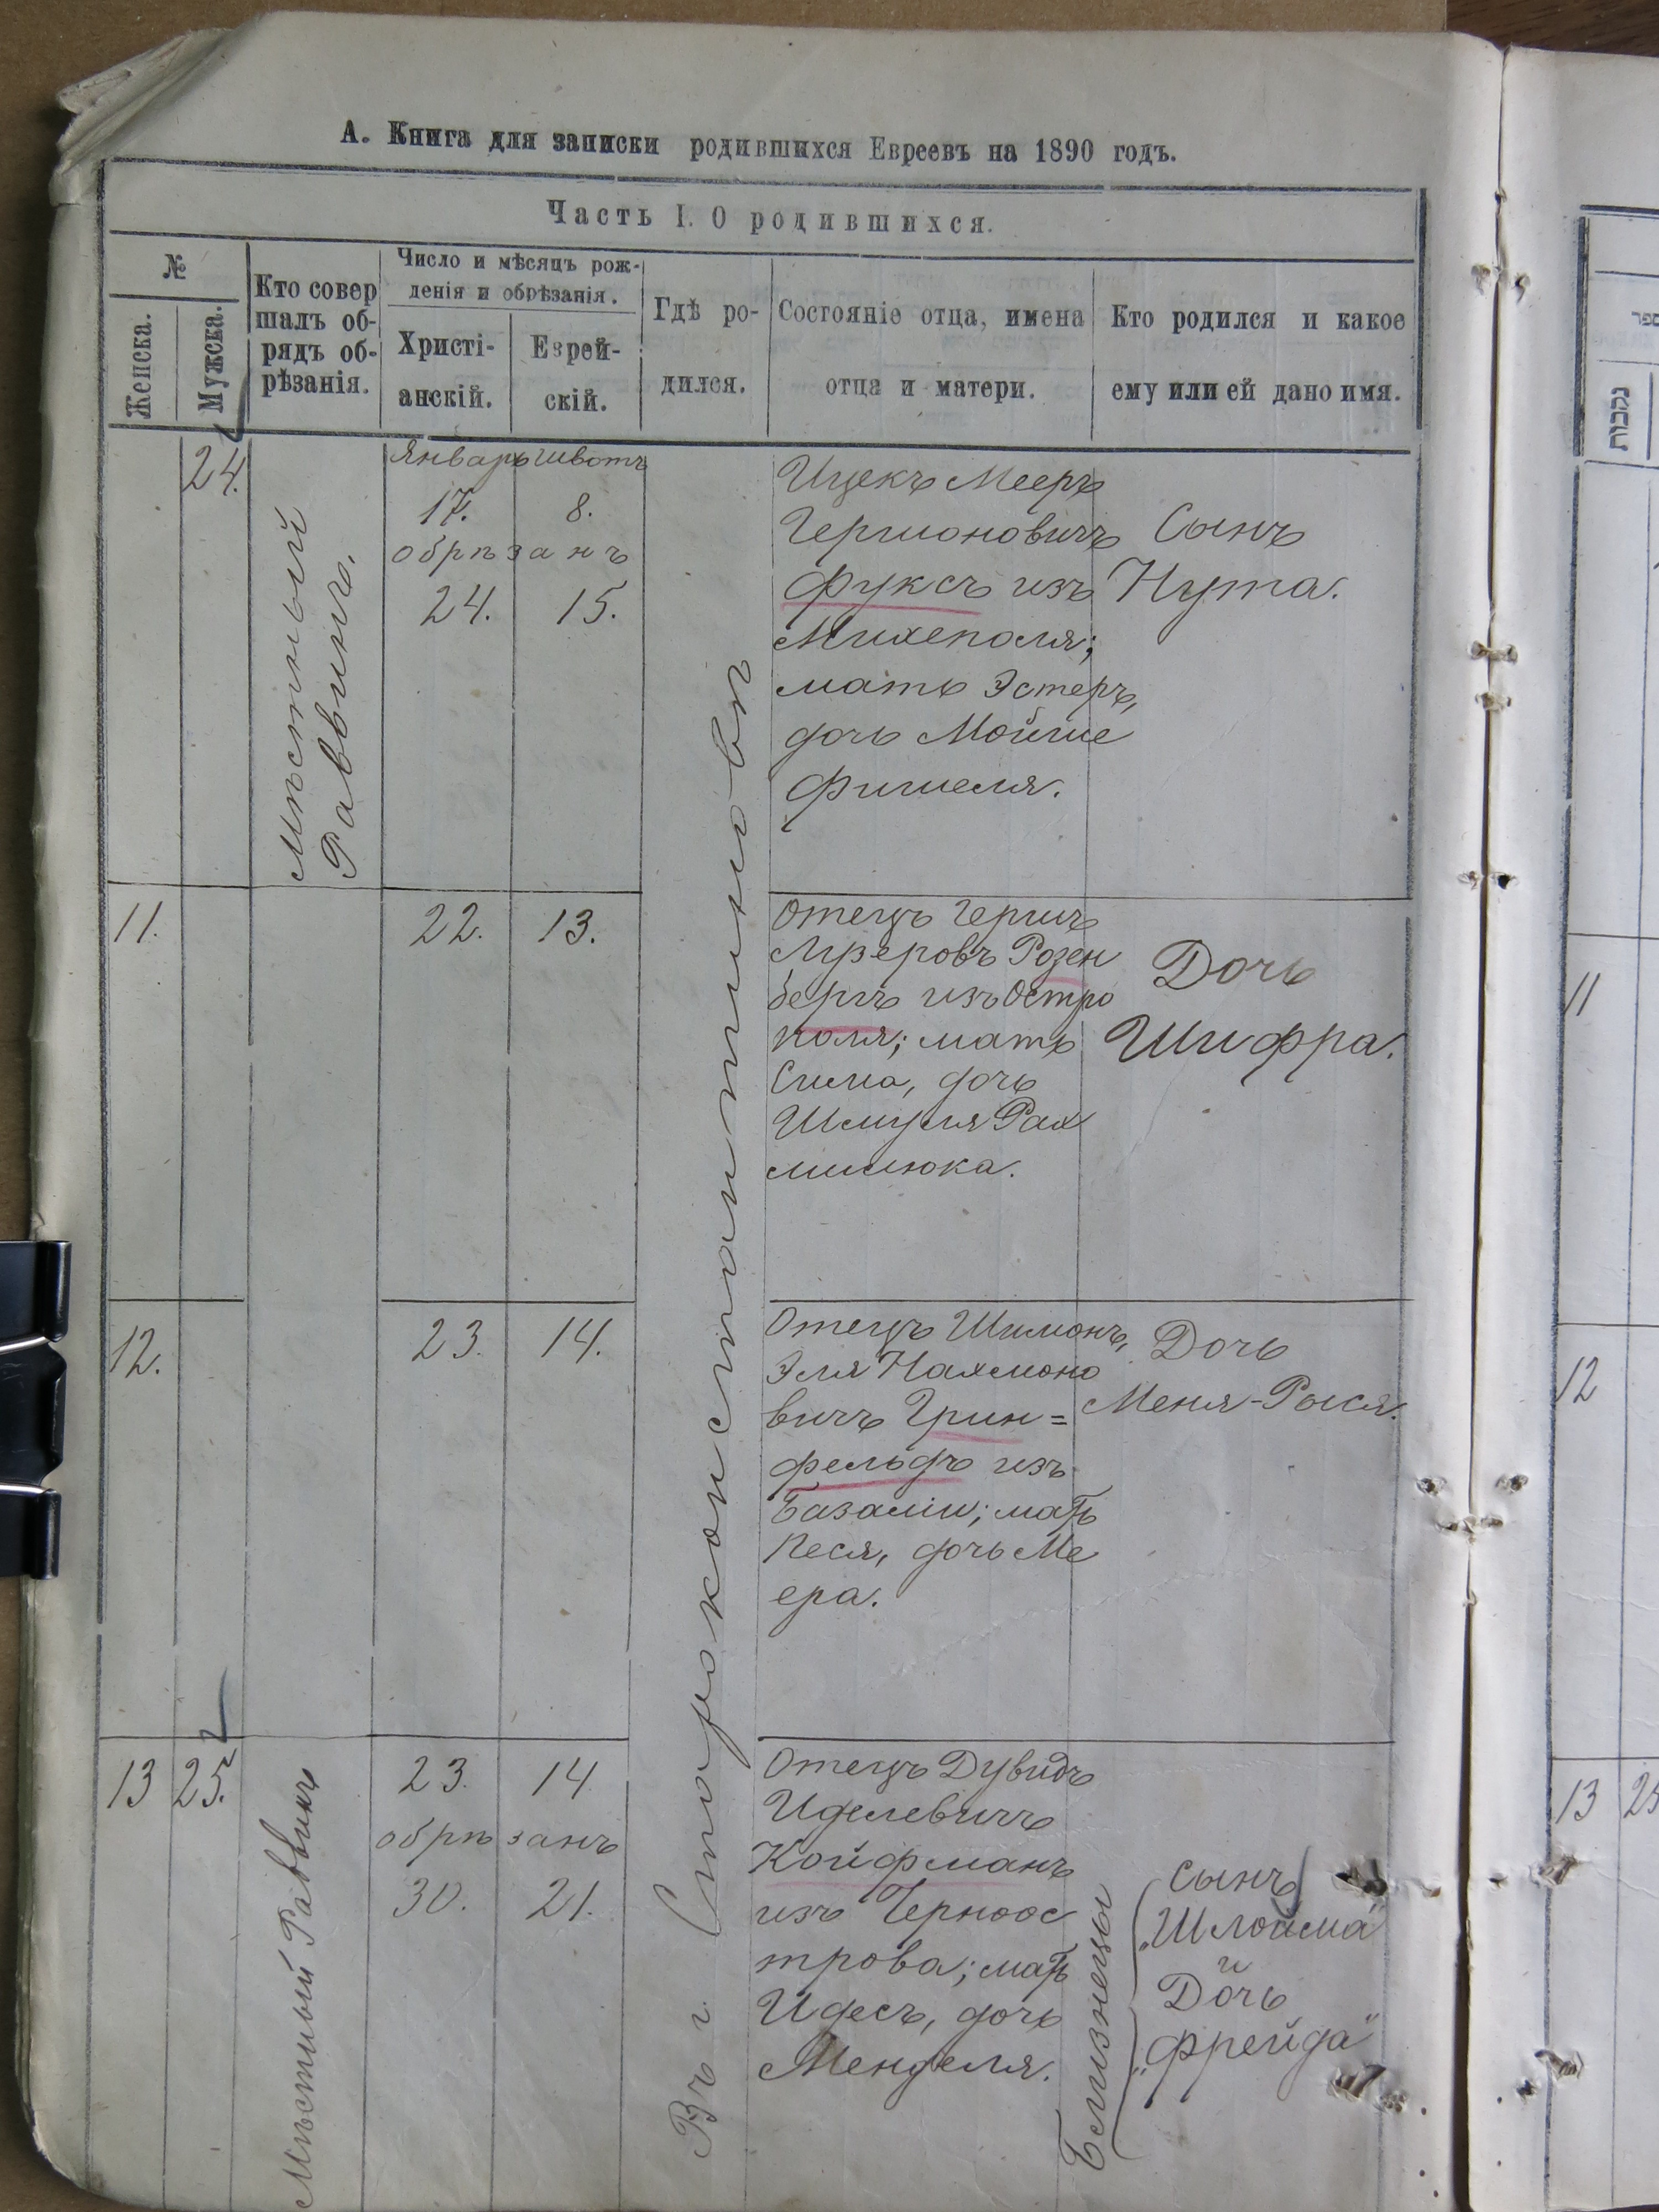 А. Книга для записки родившихся Евреевъ на 1890 годъ.
Часть I. О родившихся.
№
Женска.
Мужска.
Кто совер
шалъ об-
рядъ об-
рѣзанія.
Число и мѣсяцъ рож-
денія и обрѣзанія.
Христі-
анскій.
Еврей-
скій.
Гдѣ ро-
дился.
Состояніе отца, имена
отца и матери.
Кто родился и какое
ему или ей дано имя.
24.
Мѣстный
Раввинъ.
Январь Шватъ
17. 8.
обрѣзанъ
24. 15.
Въ г. Староконстантиновѣ
Ицекъ Мееръ
Гершоновичъ
Фуксъ изъ
Михеполя;
мать Эстеръ,
дочь Мойше
Фишеля.
Сынъ
Нута.
11.
22. 13.
Отецъ Гершъ
Лузеровъ Розен
бергъ изъ Остро
поля; мать
Сима, дочь
Шмуля Рах
милюка.
Дочь
Шифра.
12.
23. 14.
Отецъ Шимонъ,
Эля Нахмоно
вичъ Грин=
фельдъ изъ
Базаліи; мать
Песя, дочь Ме
ера.
Дочь
Меня-Рыся.
13 25.
Мѣстный Раввинъ
23. 14.
обрѣзанъ
30. 21.
Отецъ Дувидъ
Иделевичъ
Койфманъ
изъ Черноос
трова; мать
Идесъ, дочь
Менделя.
Близнецы
Сынъ
„Шлойма"
и
Дочь
„Фрейда"
ספר
נקבות
11
12
13 25